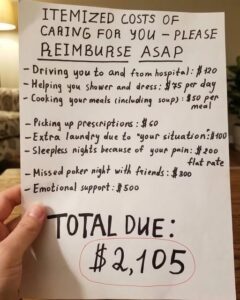 ITEMIZED COSTS OF
CARING FOR YOU – PLEASE
REIMBURSE ASAP
– Driving you to and from hospital: $120
– Helping you shower and dress: $75 per day
– Cooking your meals (including soup): $50 per
meal
– Picking up prescriptions: $60
– Extra laundry due to "your situation": $100
– Sleepless nights because of your pain: $200
flat rate
– Missed poker night with friends: $300
– Emotional support: $500
TOTAL DUE:
$2,105